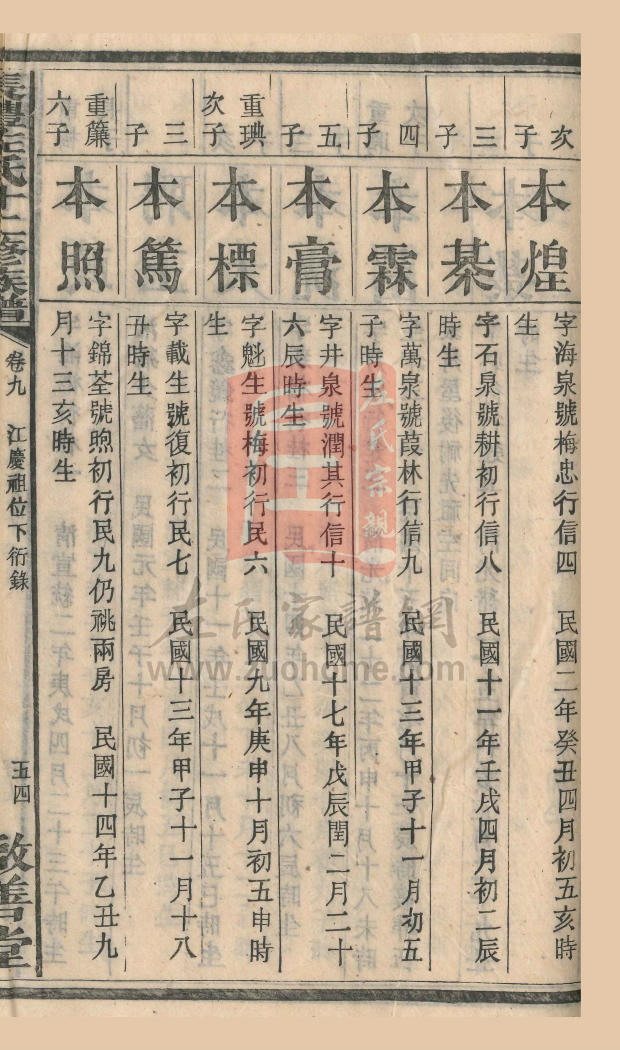 次子
本煌
字海泉號梅忠行信四　民國二年癸丑四月初五亥時
生
三子
本棊
字石泉號耕初行信八　民國十一年壬戌四月初二辰
時生
四子
本霖
字萬泉號葭林行信九　民國十三年甲子十一月初五
子時生
五子
本膏
字井泉號潤其行信十　民國十七年戊辰閏二月二十
六辰時生
重㻠次子
本標
字魁生號梅初行民六　民國九年庚申十月初五申時
生
三子
本篤
字載生號復初行民七　民國十三年甲子十一月十八
丑時生
重簾六子
本照
字錦荃號煦初行民九仍祧兩房　民國十四年乙丑九
月十三亥時生
左氏十二修族譜
卷九　江慶祖位下衍錄
五四
敦善堂
左氏宗親
左氏家譜網
www.zuohome.com